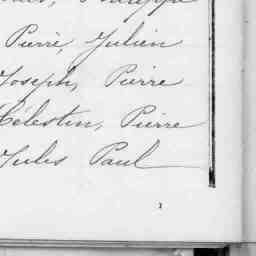 Pierre, Julien
Joseph, Pierre
Célestin, Pierre
Jules Paul
1